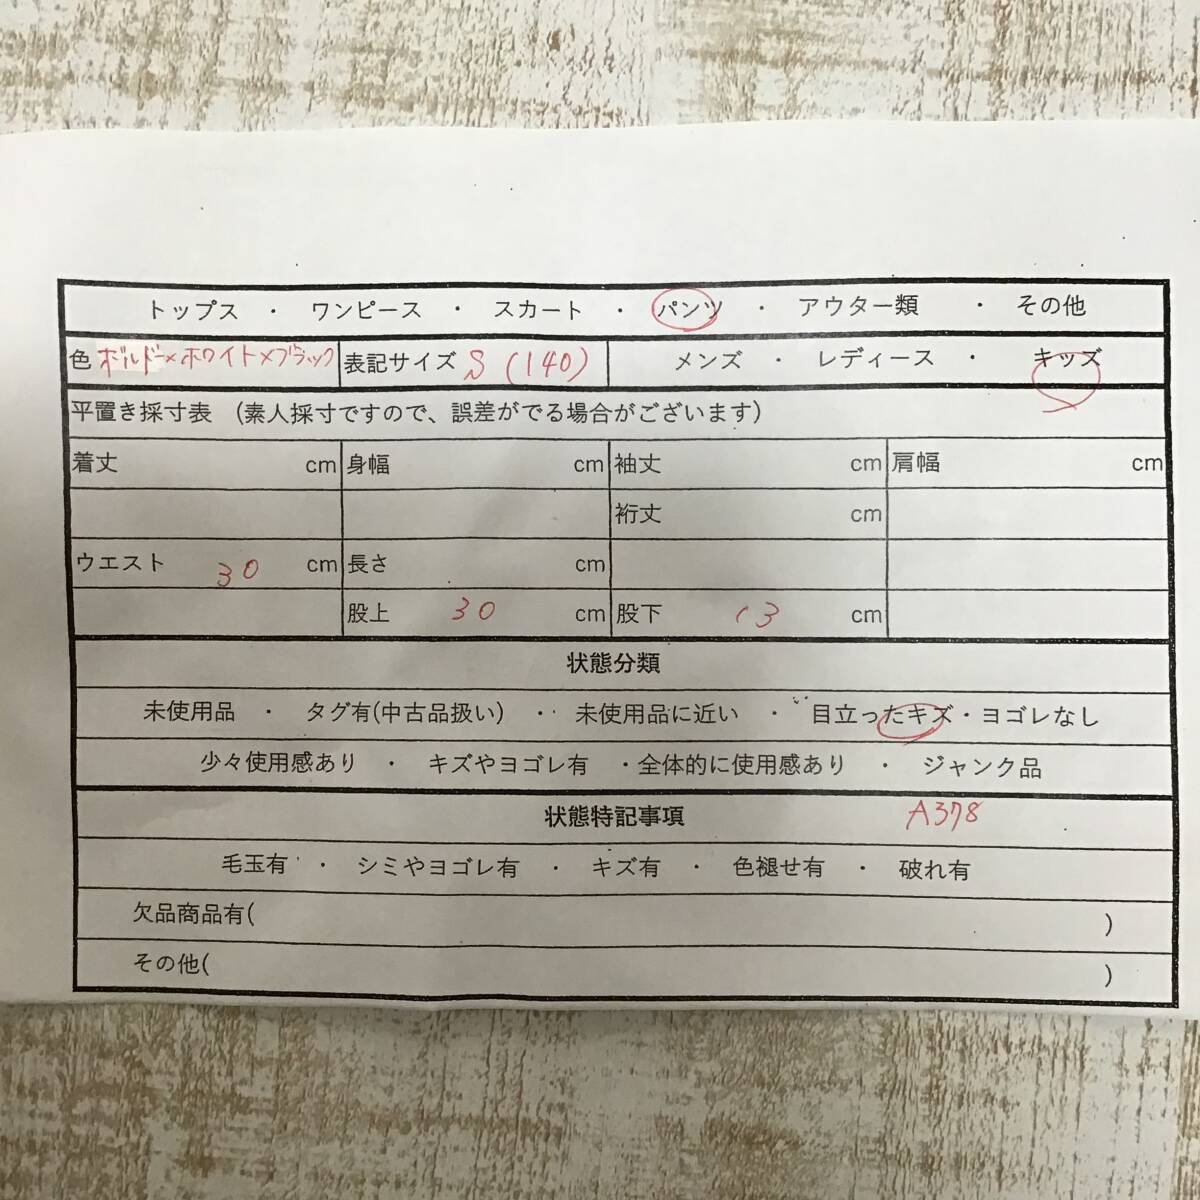 トップス ・ ワンピース ・ スカート ・ パンツ ・ アウター類 ・ その他
色 ボルドー×ホワイト×ブラック 表記サイズ S (140) メンズ ・ レディース ・ キッズ
平置き採寸表 (素人採寸ですので、誤差がでる場合がございます)
着丈 cm 身幅 cm 袖丈 cm 肩幅 cm
裄丈 cm
ウエスト 30 cm 長さ cm
股上 30 cm 股下 13 cm
状態分類
未使用品 ・ タグ有(中古品扱い) ・ 未使用品に近い ・ 目立ったキズ・ヨゴレなし
少々使用感あり ・ キズやヨゴレ有 ・全体的に使用感あり ・ ジャンク品
状態特記事項 A378
毛玉有 ・ シミやヨゴレ有 ・ キズ有 ・ 色褪せ有 ・ 破れ有
欠品商品有( )
その他( )